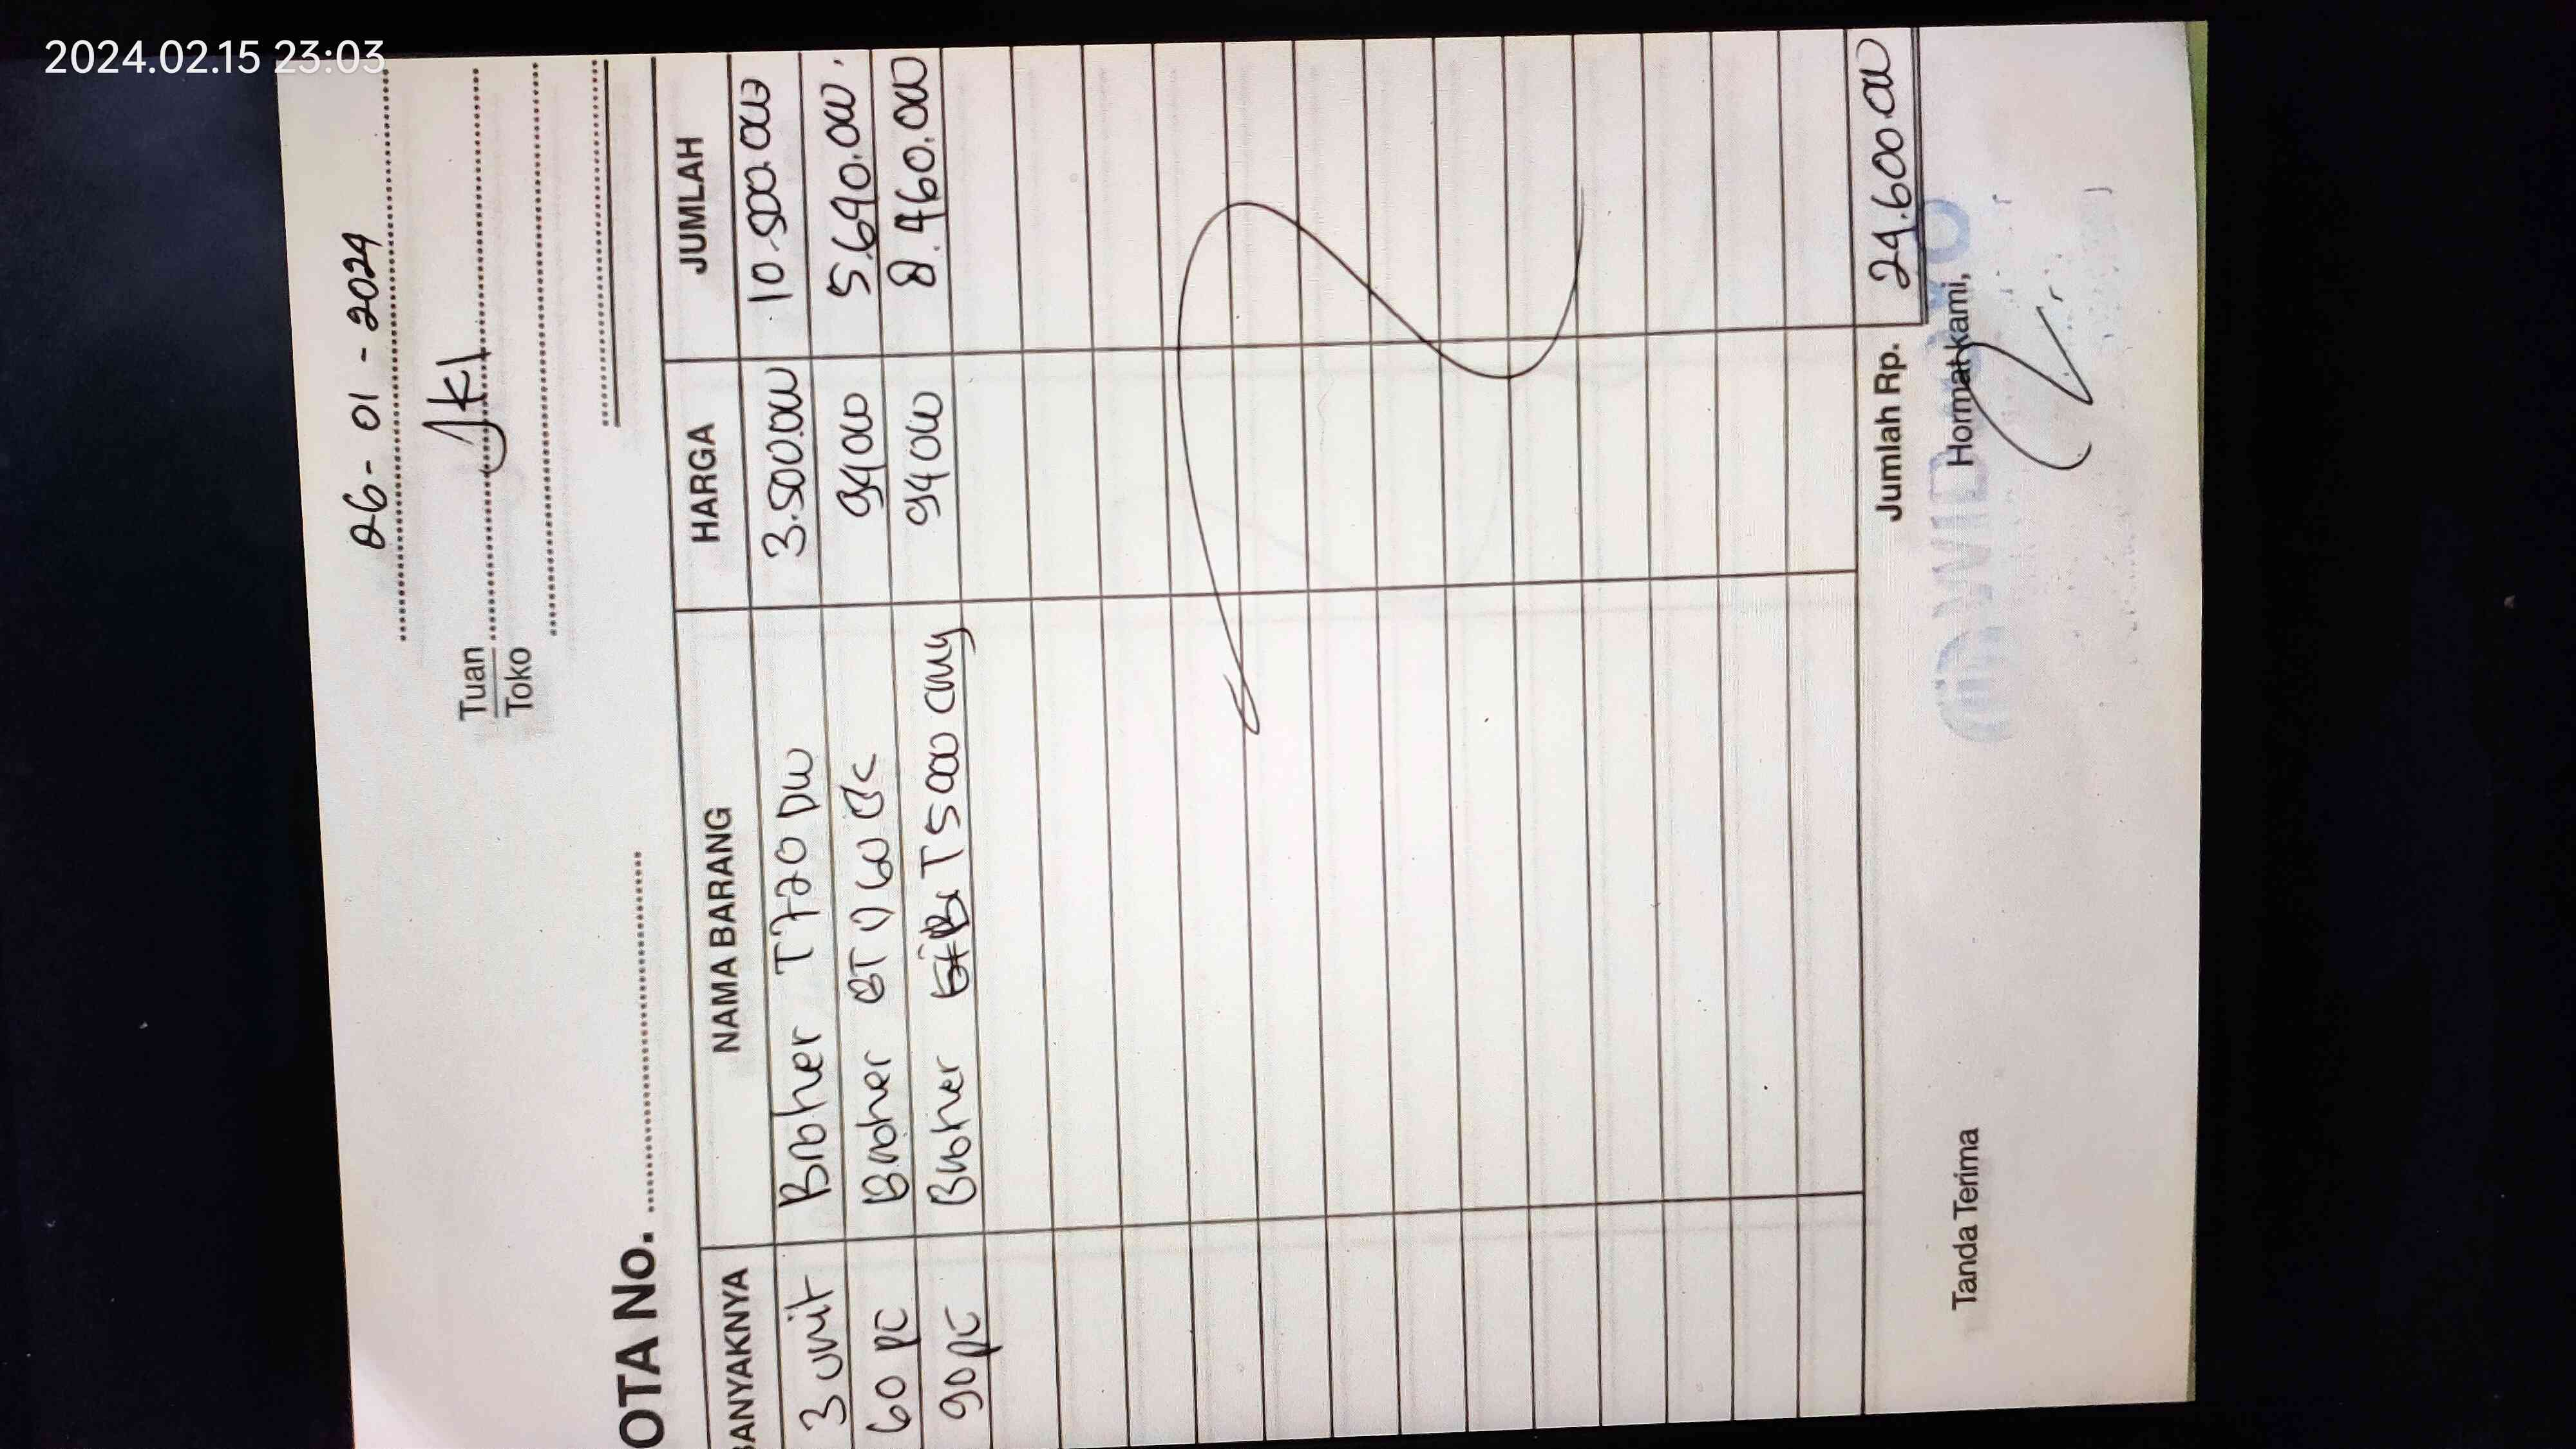 2024.02.15 23:03
26-01-2024
Tuan Jkl
Toko
OTA No.
BANYAKNYA NAMA BARANG HARGA JUMLAH
3 unit Brother T720 DW 3.500.000 10.500.000
60 pc Brother BT D60 BK 94000 5.640.000.
90 pc Brother BT5000 CMY 94000 8.460.000
Jumlah Rp. 24.600.000
Tanda Terima Hormat kami,